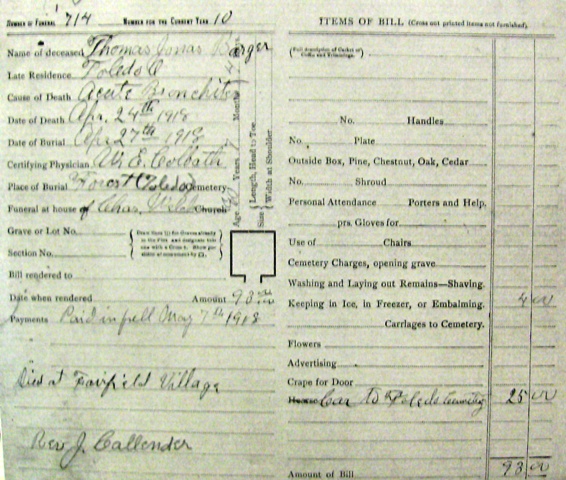 NUMBER OF FUNERAL 714 NUMBER FOR THE CURRENT YEAR 10
Name of deceased Thomas Jonas Barger
Late Residence Toledo O
Cause of Death Acute Bronchitis
Date of Death Apr. 24th 1918
Date of Burial Apr 27th 1918
Certifying Physician E.
Place of Burial Forest (Toledo) Cemetery
Funeral at house of Chas. Church
Grave or Lot No.
Section No.
Bill rendered to
Date when rendered Amount 93
Payments Paid in full May 7th 1918
Died at Fairfield Village
Rev J. Callender
Age Years, Months
Size Length, Head to Toe
Width at Shoulder
ITEMS OF BILL (Cross out printed items not furnished)
(Full description of Casket or Coffin and Trimmings.)
No. Handles
No. Plate
Outside Box, Pine, Chestnut, Oak, Cedar
No. Shroud
Personal Attendance Porters and Help,
prs. Gloves for
Use of Chairs
Cemetery Charges, opening grave
Washing and Laying out Remains—Shaving.
Keeping in Ice, in Freezer, or Embalming. 4 00
Carriages to Cemetery.
Flowers
Advertising
Crape for Door
Hearse Car to Toledo 25 00
Amount of Bill 93 00